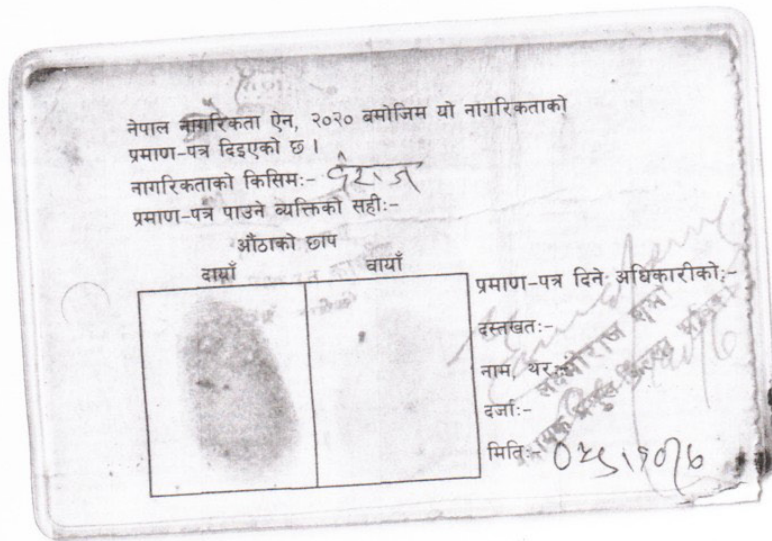 नेपाल नागरिकता ऐन, २०२० बमोजिम यो नागरिकताको
प्रमाण-पत्र दिइएको छ ।
नागरिकताको किसिम:- वंशज
प्रमाण-पत्र पाउने व्यक्तिको सही:-
औंठाको छाप
दायाँ बायाँ
प्रमाण-पत्र दिने अधिकारीको:-
दस्तखत:-
नाम, थर:-
लक्ष्मीराज शर्मा
दर्जा:-
मिति:-